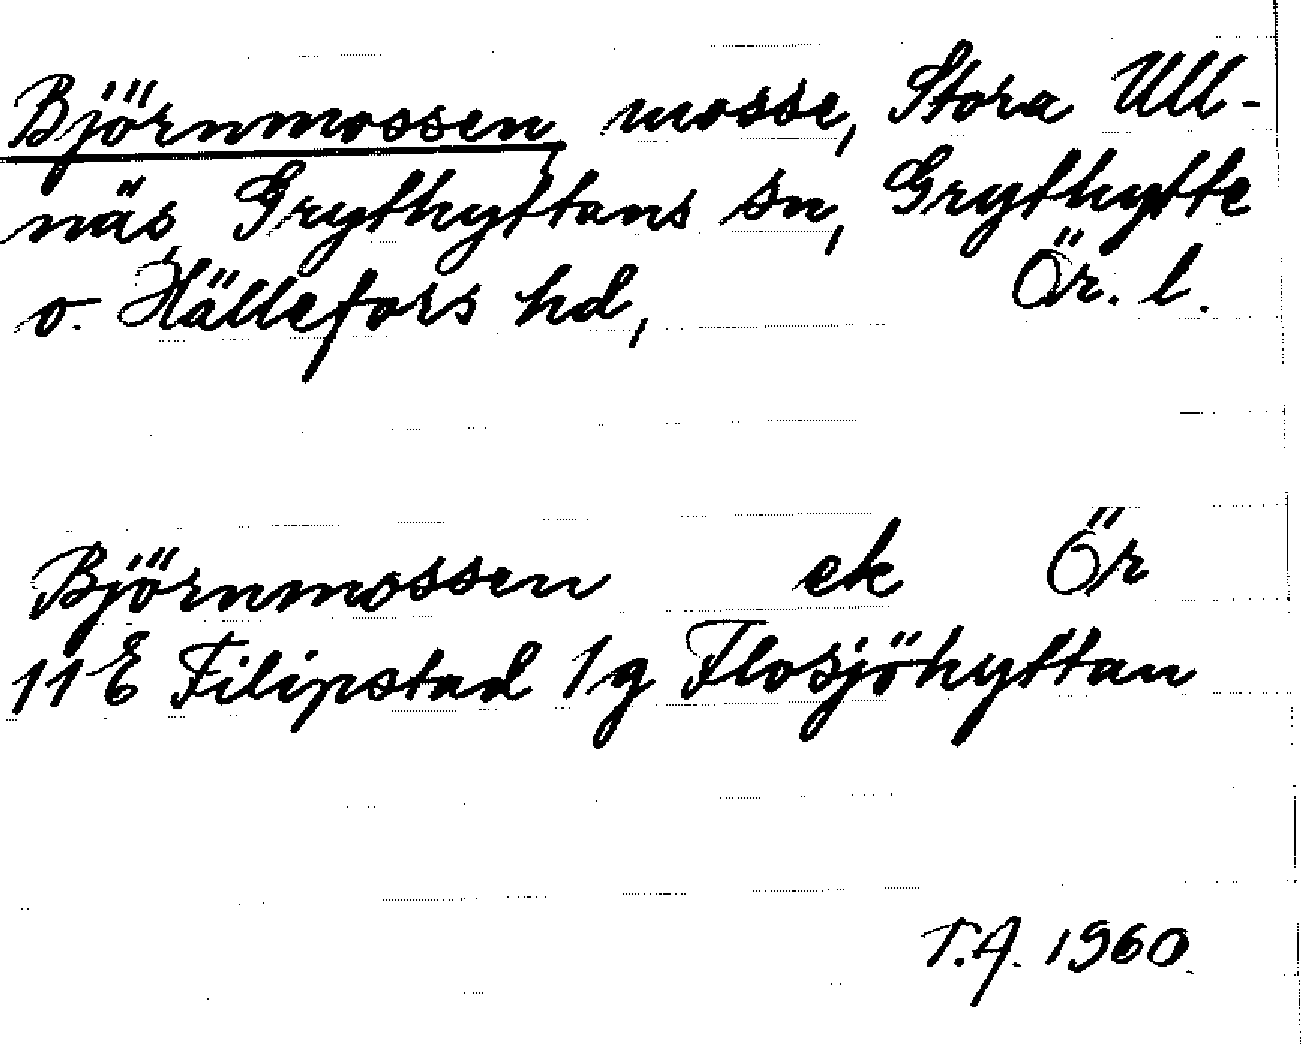 Björnmossen, mosse, Stora Ull-
näs, Grythyttans sn, Grythytte
o. Hällefors hd, Ör. l.
Björnmossen ek Ör
11 E Filipstad 1g Flosjöhyttan
T.A. 1960